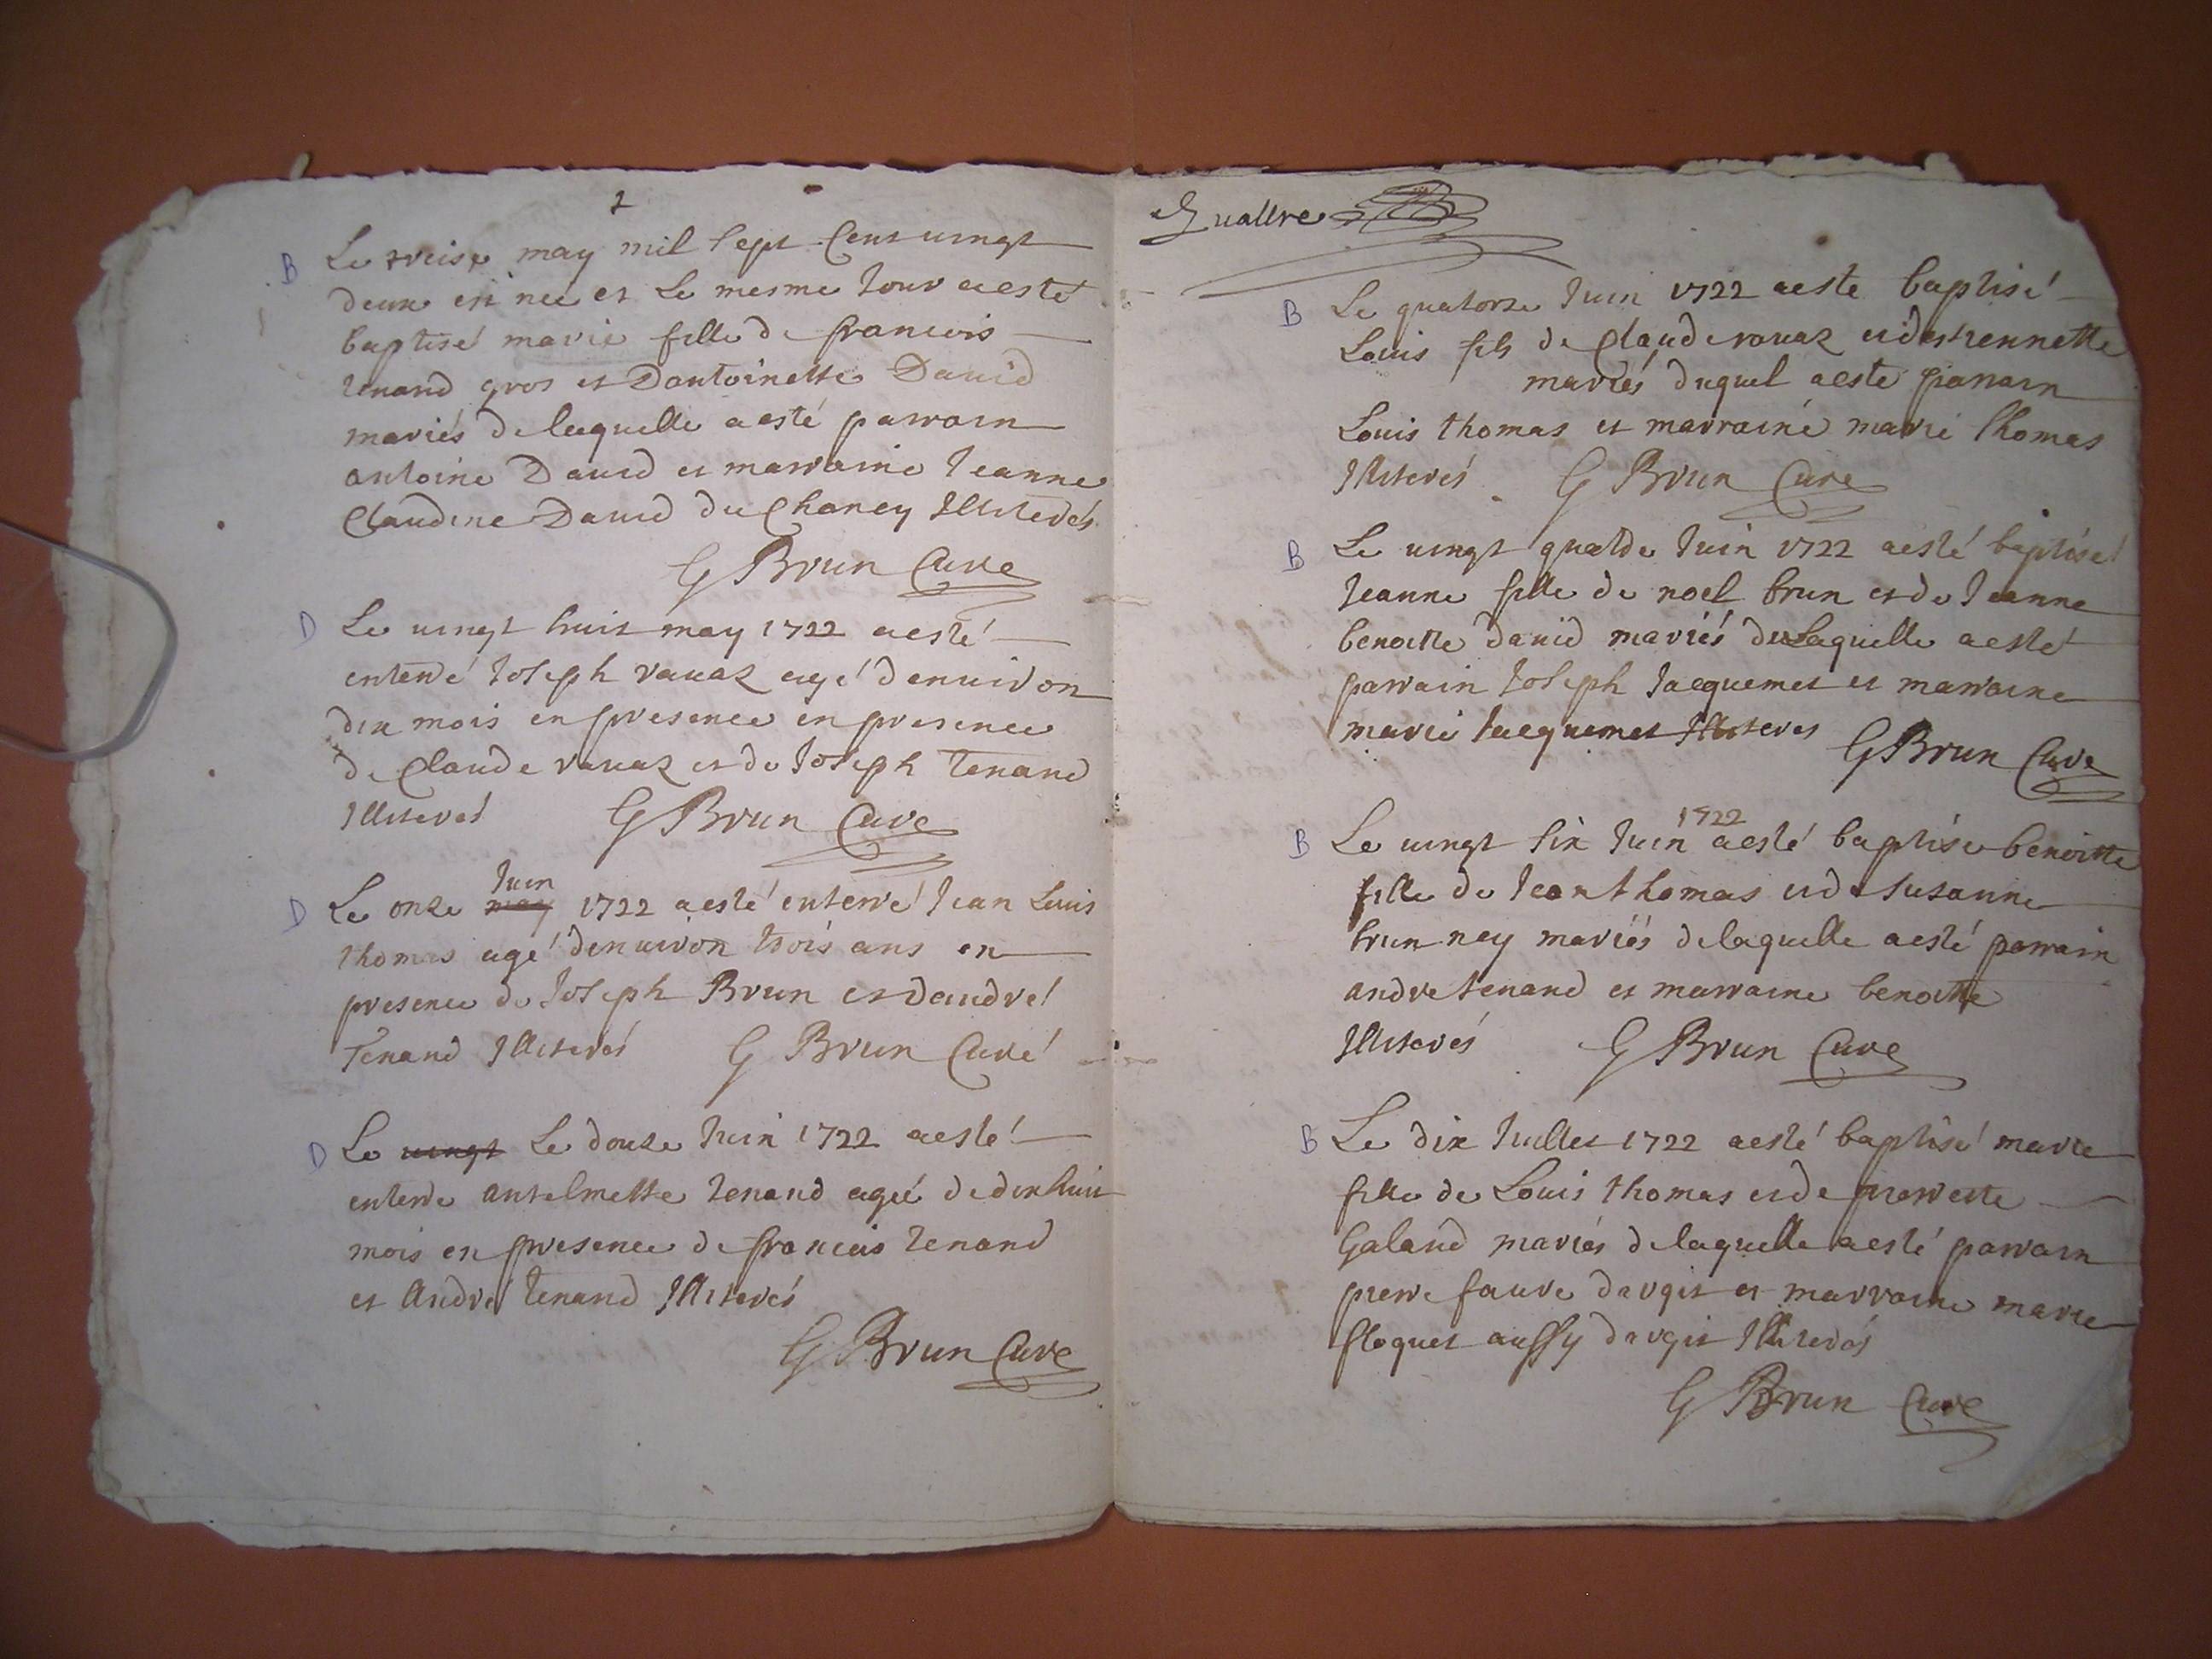 2
B Le treise may mil sept Cent vingt
deux est née et Le mesme Jour a esté
baptisé marie fille de francois
tenand gros et Dantoinette David
mariés de laquelle a esté parrain
antoine David et marraine Jeanne
Claudine David du Chaney Illiterés
G Brun Curé
D Le vingt huit may 1722 a esté
enterré Joseph ravaz agé denviron
dix mois en presence en presence
de Claude ravaz et de Joseph tenand
Illiterés G Brun Curé
Juin
D Le onze may 1722 a esté enterré Jean Louis
thomas agé denviron trois ans en
presence de Joseph Brun et dandré
Tenand Illiterés G Brun Curé
D Le vingt Le douze Juin 1722 a esté
enterré antelmette tenand agée de dix huit
mois en presence de francois tenand
et André tenand Illiterés
G Brun Curé
Quattre
B Le quatorze Juin 1722 a esté baptisé
Louis fils de Claude ravaz et destiennette
mariés duquel a esté parrain
Louis thomas et marraine marie thomas
Illiterés G Brun Curé
B Le vingt quatre Juin 1722 a esté baptisé
Jeanne fille de noel brun et de Jeanne
benoitte david mariés de Laquelle a esté
parrain Joseph Jacquemet et marraine
marie Jacquemet Illiteres G Brun Curé
1722
B Le vingt six Juin a esté baptisé benoitte
fille de Jean thomas et de susanne
brun ney mariés de laquelle a esté parrain
andre tenand et marraine benoitte
Illiterés G Brun Curé
B Le dix Juillet 1722 a esté baptisé marie
fille de Louis thomas et de pierrette
Galand mariés de laquelle a esté parrain
pierre favre dargit et marraine marie
floquet aussy dargit Illiterés
G Brun Curé